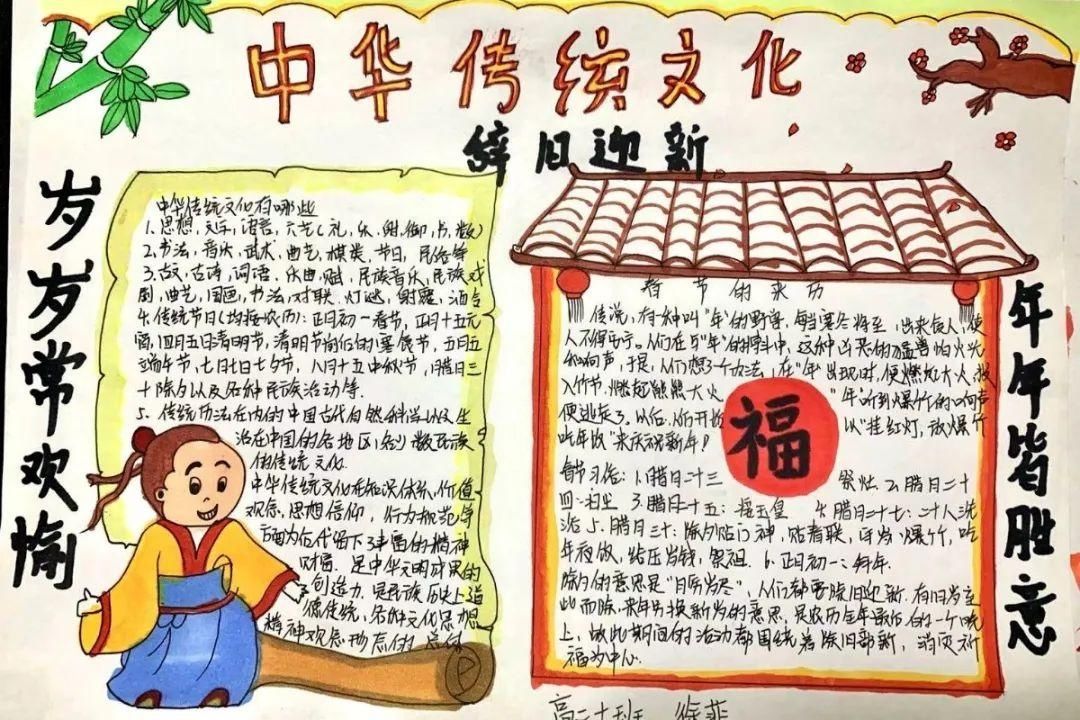 中华传统文化
辞旧迎新
岁岁常欢愉
年年皆胜意
中华传统文化有哪些
1.思想,文字,语言,六艺(礼、乐、射、御、书、数)
2.书法,音乐,武术,曲艺,棋类,节日,民俗等
3.古文,古诗,词语,乐曲,赋,民族音乐,民族戏
剧,曲艺,国画,书法,对联,灯谜,射覆,酒令
4.传统节日(均按农历):正月初一春节,正月十五元
宵,四月五日清明节,清明节前后的寒食节,五月五
端午节,七月七日七夕节,八月十五中秋节,腊月三
十除夕以及各种民族活动等.
5.传统历法在内的中国古代自然科学以及生
活在中国的各地区、少数民族
的传统文化.
中华传统文化在知识体系,价值
观念,思想信仰,行为规范等
方面为后代留下了丰富的精神
财富.是中华文明成果的
创造力,是民族历史上道
德传统,各种文化思想
精神观念形态的总体
春节的来历
传说,有一种叫"年"的野兽,每当寒冬将至,出来食人,使
人不得安宁。人们在与"年"的斗争中,这种凶恶的猛兽怕火光
和响声,于是,人们想了个办法:在"年"出现时,便燃起大火,投
入竹节,燃起熊熊大火 "年"听到爆竹的响声
便逃走了。以后,人们开始 以"挂红灯,放爆竹
吃年饭"来庆祝新年!
春节习俗:1.腊月二十三 祭灶.2.腊月二十
四:扫尘 3.腊月二十五:接玉皇 4.腊月二十七:二十八洗
浴5.腊月三十:除夕贴门神,贴春联,守岁,爆竹,吃
年夜饭,给压岁钱,祭祖.6.正月初一:拜年.
除夕的意思是"月穷岁尽",人们都要除旧迎新.有旧岁至
此而除,来年另换新岁的意思,是农历全年最后的一个晚
上,故此期间的活动都围绕着除旧部新,消灾祈
福为中心.
福
高二十班 徐菲